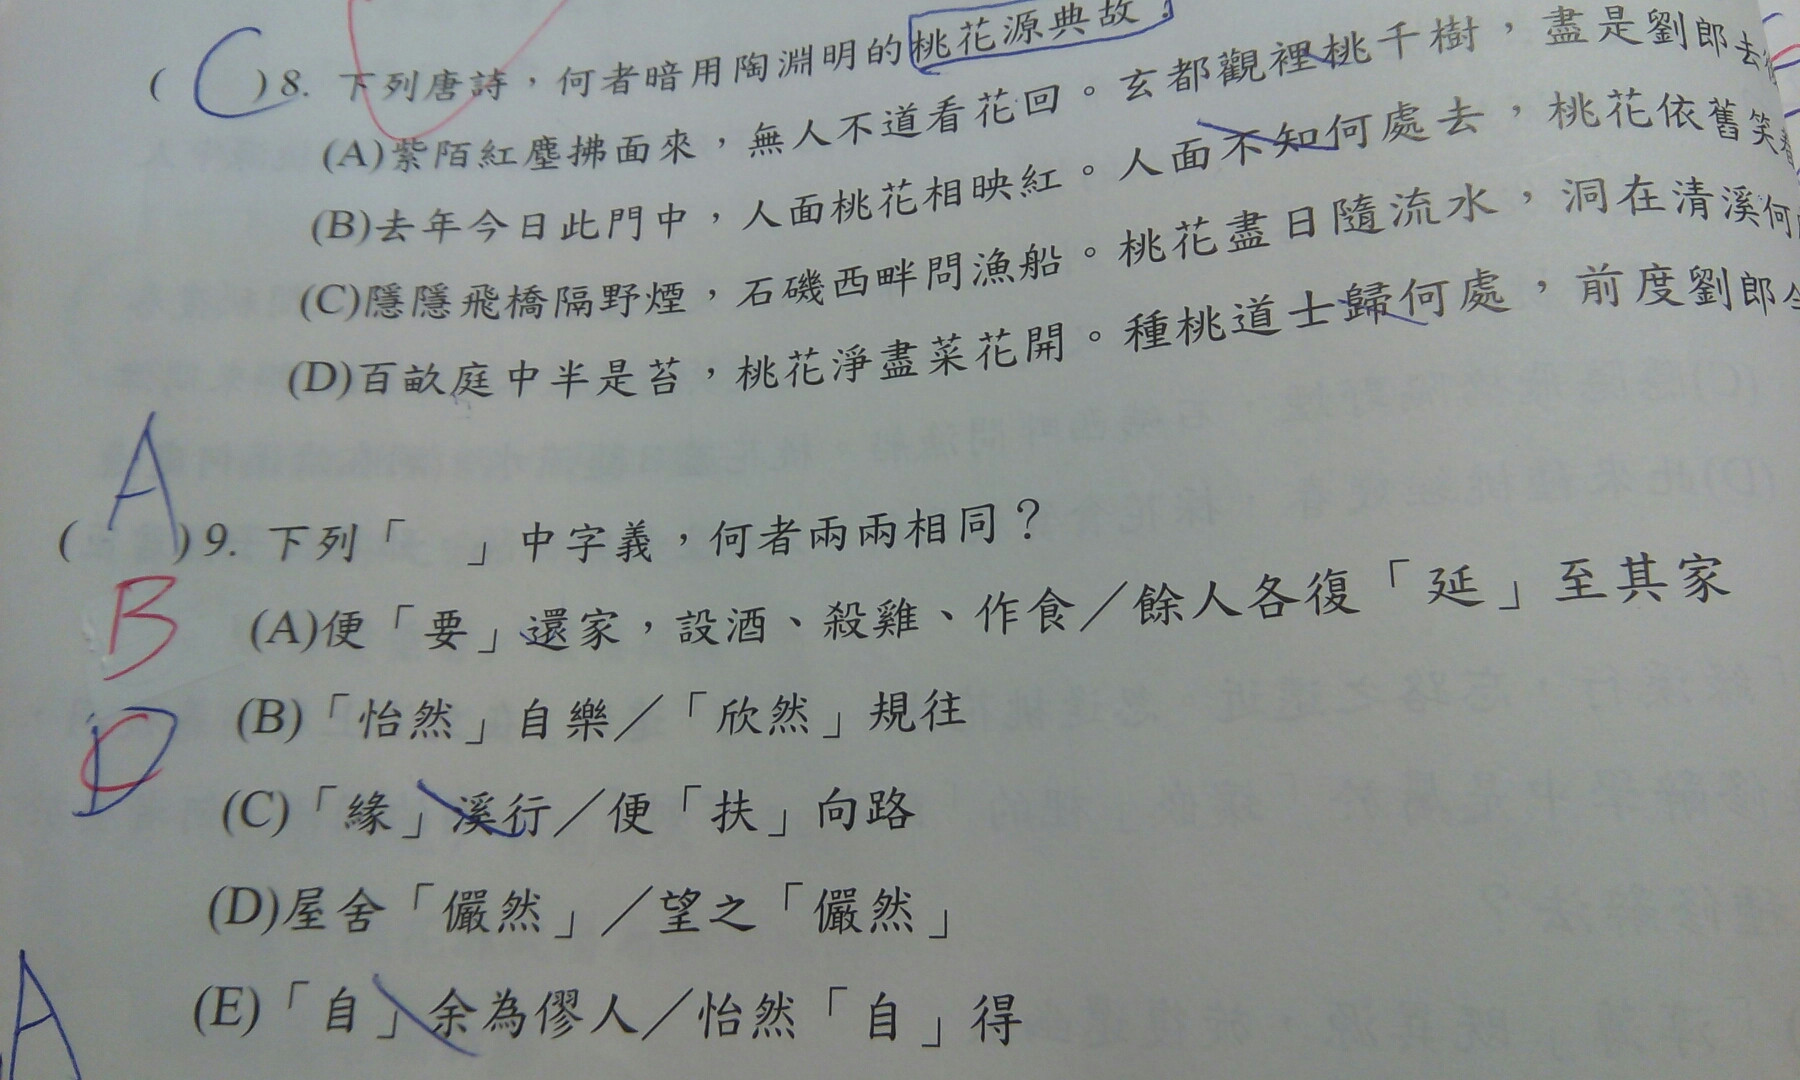 ( C )8. 下列唐詩，何者暗用陶淵明的桃花源典故？
(A)紫陌紅塵拂面來，無人不道看花回。玄都觀裡桃千樹，盡是劉郎去
(B)去年今日此門中，人面桃花相映紅。人面不知何處去，桃花依舊笑
(C)隱隱飛橋隔野煙，石磯西畔問漁船。桃花盡日隨流水，洞在清溪何
(D)百畝庭中半是苔，桃花淨盡菜花開。種桃道士歸何處，前度劉郎
( A )9. 下列「　」中字義，何者兩兩相同？
B
(A)便「要」還家，設酒、殺雞、作食／餘人各復「延」至其家
D C
(B)「怡然」自樂／「欣然」規往
(C)「緣」溪行／便「扶」向路
(D)屋舍「儼然」／望之「儼然」
(E)「自」余為僇人／怡然「自」得
A